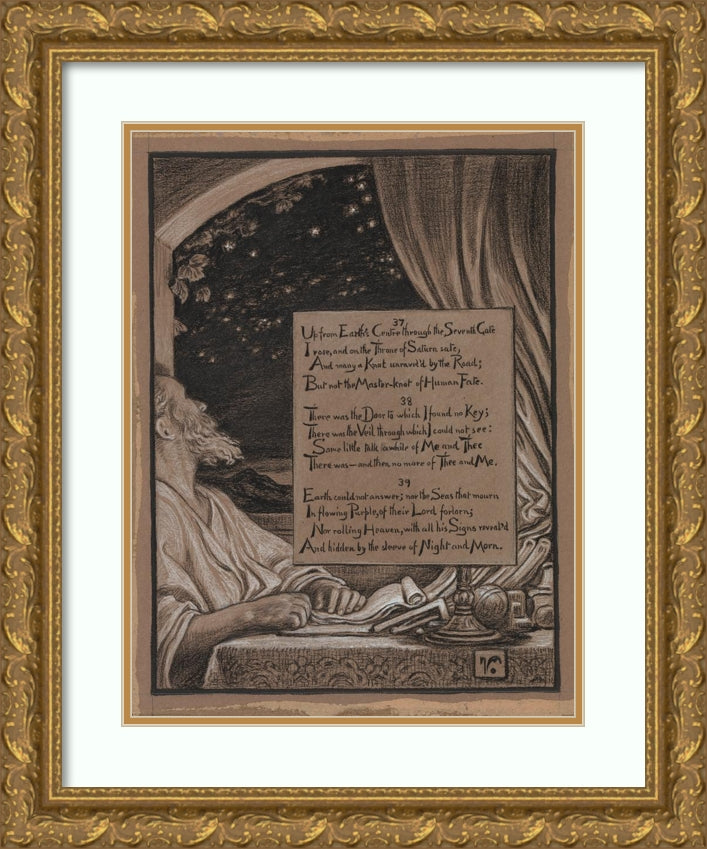 37
Up from Earth's Centre through the Seventh Gate
I rose, and on the Throne of Saturn sate,
And many a Knot unravel'd by the Road;
But not the Master-knot of Human Fate.
38
There was the Door to which I found no Key;
There was the Veil through which I could not see:
Some little talk awhile of Me and Thee
There was—and then no more of Thee and Me.
39
Earth could not answer; nor the Seas that mourn
In flowing Purple, of their Lord forlorn;
Nor rolling Heaven, with all his Signs reveal'd
And hidden by the sleeve of Night and Morn.
V.